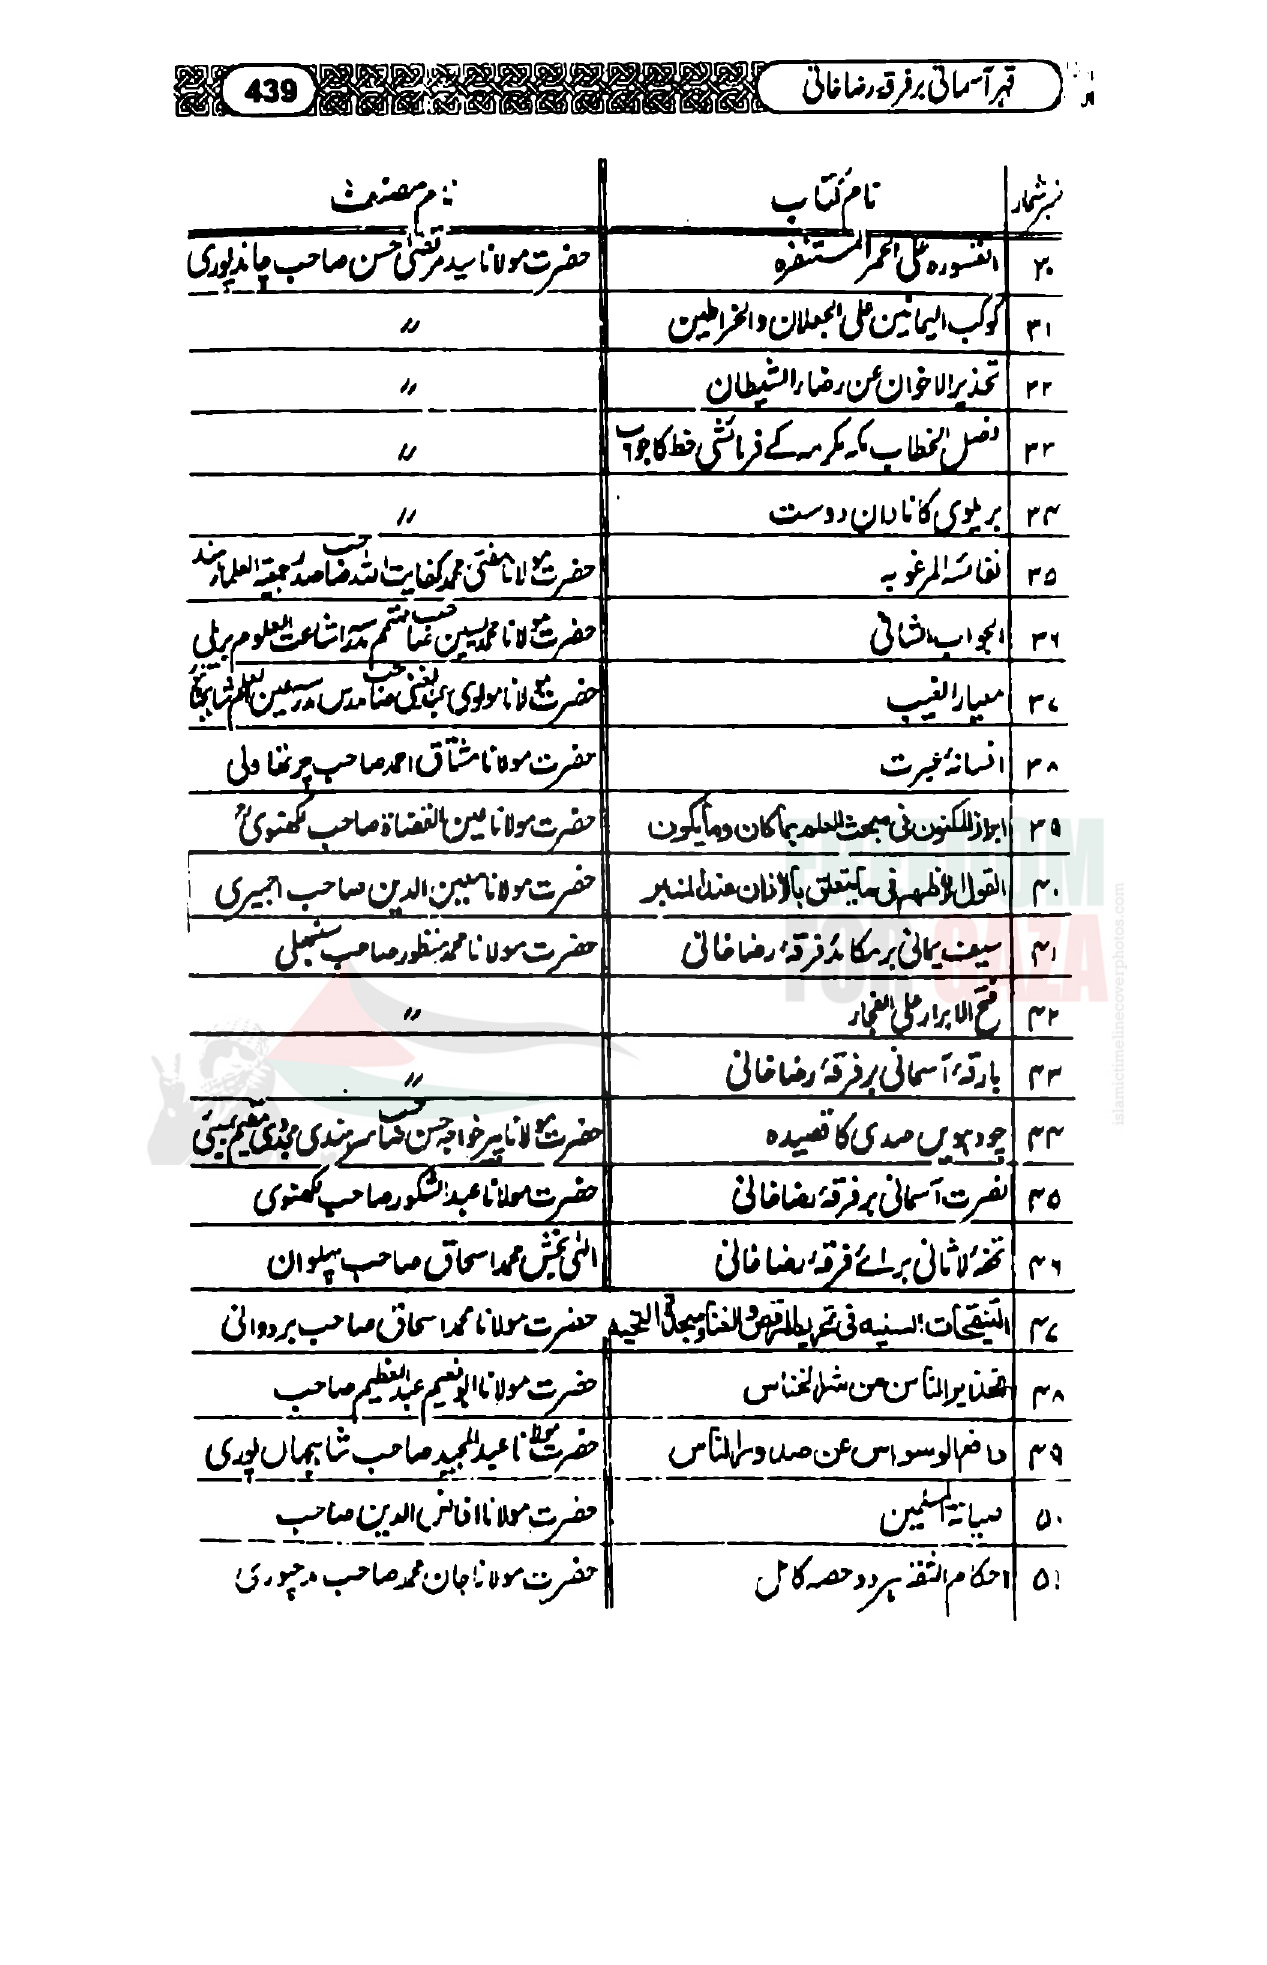 439 قہر آسمانی بر فرقہ رضاخانی
نمبر شمار نام کتاب نام مصنف
۳۰ القسورہ علی الحمر المستنفرہ حضرت مولانا سید مرتضیٰ حسن صاحب چاندپوری
۳۱ کوکب الیمانین علی الجعلان والخراطین 〃
۳۲ تحذیر الاخوان عن رضاء الشیطان 〃
۳۳ فصل الخطاب مکہ مکرمہ کے فرمائشی خط کا جواب 〃
۳۴ بریلوی کا نادان دوست 〃
۳۵ نفائس المرغوبہ حضرت مولانا مفتی محمد کفایت اللہ صاحب صدر جمعیۃ العلماء ہند
۳۶ الجواب الشانی حضرت مولانا محمد یٰسین صاحب مہتمم مدرسہ اشاعت العلوم بریلی
۳۷ معیار الغیب حضرت مولانا مولوی عبدالغنی صاحب مدرس مدرسہ عین العلم
۳۸ افسانۂ عبرت حضرت مولانا مشتاق احمد صاحب چرتھاولی
۳۹ ابراز المکنون فی مبحث العلم بما کان وما یکون حضرت مولانا عین القضاۃ صاحب لکھنوی
۴۰ القول الاظہر فی ما یتعلق بالاذان عند المنبر حضرت مولانا معین الدین صاحب اجمیری
۴۱ سیف یمانی بر مکائد فرقۂ رضاخانی حضرت مولانا محمد منظور صاحب سنبھلی
۴۲ فتح الابرار علی الفجار 〃
۴۳ بارقۂ آسمانی بر فرقۂ رضاخانی 〃
۴۴ چودہویں صدی کا قصیدہ حضرت مولانا پیر خواجہ حسن صاحب سرہندی مجددی مقیم بمبئی
۴۵ نصرت آسمانی بر فرقۂ رضاخانی حضرت مولانا عبدالشکور صاحب لکھنوی
۴۶ تحفۂ لاثانی برائے فرقۂ رضاخانی الٰہی بخش محمد اسحاق صاحب پہلوان
۴۷ التنقیحات السنیہ فی تحریم الرقص والغناء وسجدۃ التحیہ حضرت مولانا محمد اسحاق صاحب بردوانی
۴۸ تحذیر الناس من شر الخناس حضرت مولانا ابو نعیم عبدالعظیم صاحب
۴۹ دافع الوسواس عن صدور الناس حضرت مولانا عبدالمجید صاحب شاہجہاں پوری
۵۰ صیانۃ المسلمین حضرت مولانا افاض الدین صاحب
۵۱ احکام الثقہ ہر دو حصہ کامل حضرت مولانا جان محمد صاحب
FREEDOM
FOR GAZA
islamictimelinecoverphotos.com